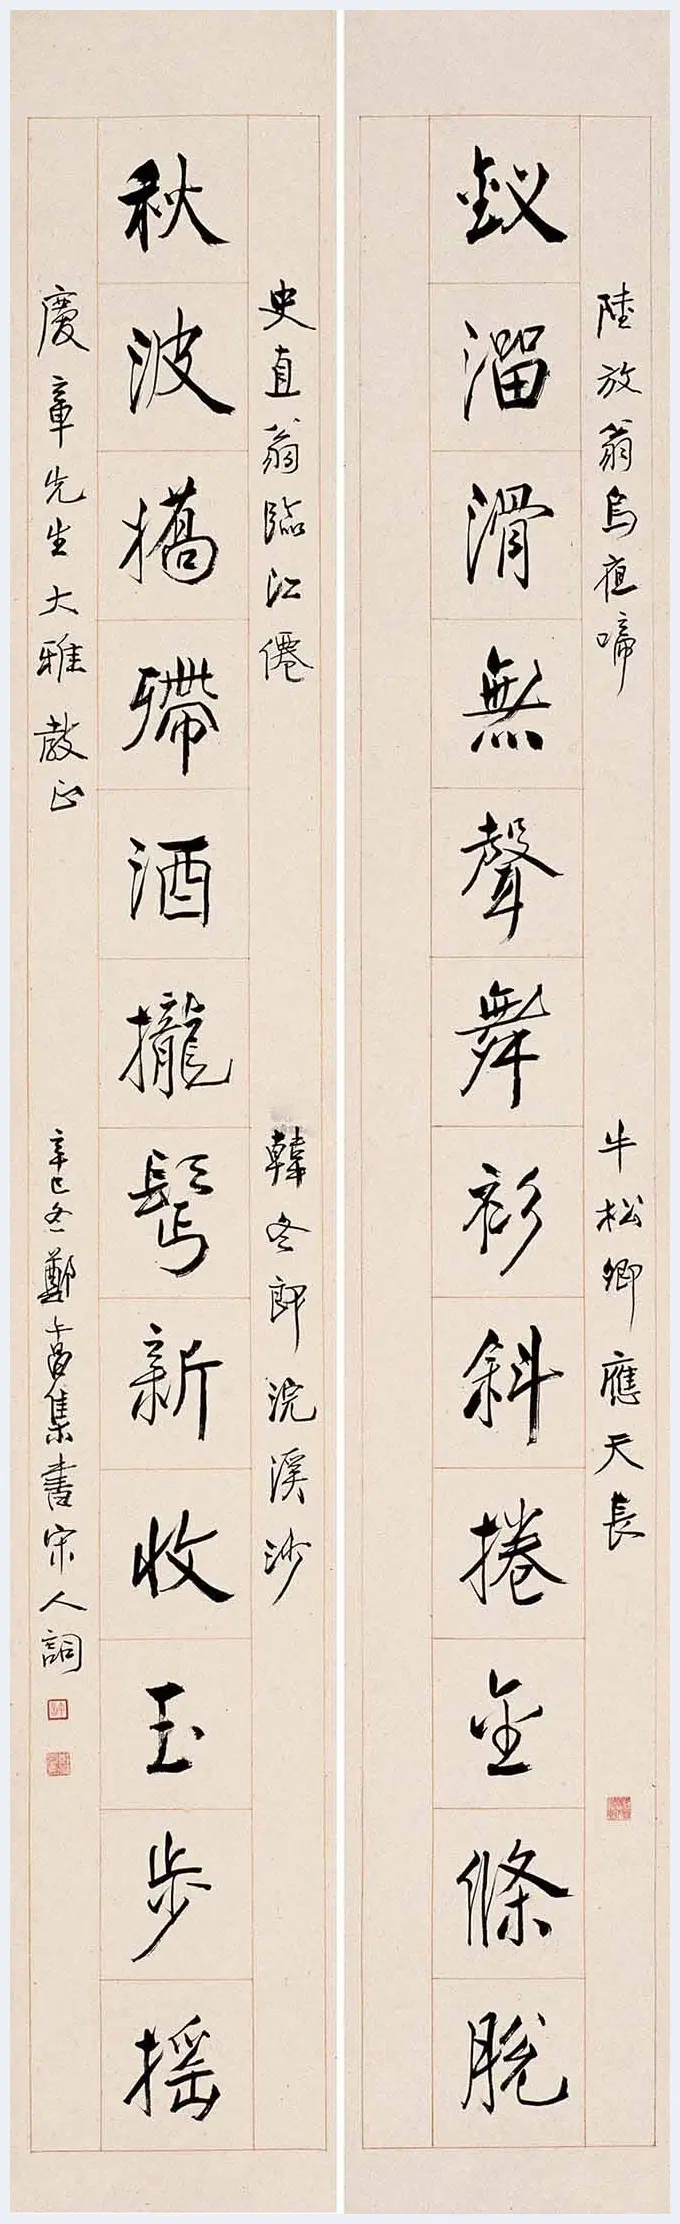 陸放翁烏夜啼
牛松卿應天長
釵溜滑無聲舞衫斜捲金條脫
史直翁臨江僊
韓冬郎浣溪沙
秋波嬌殢酒攏鬢新收玉步搖
慶章先生大雅教正
辛巳冬鄭午昌集書宋人詞